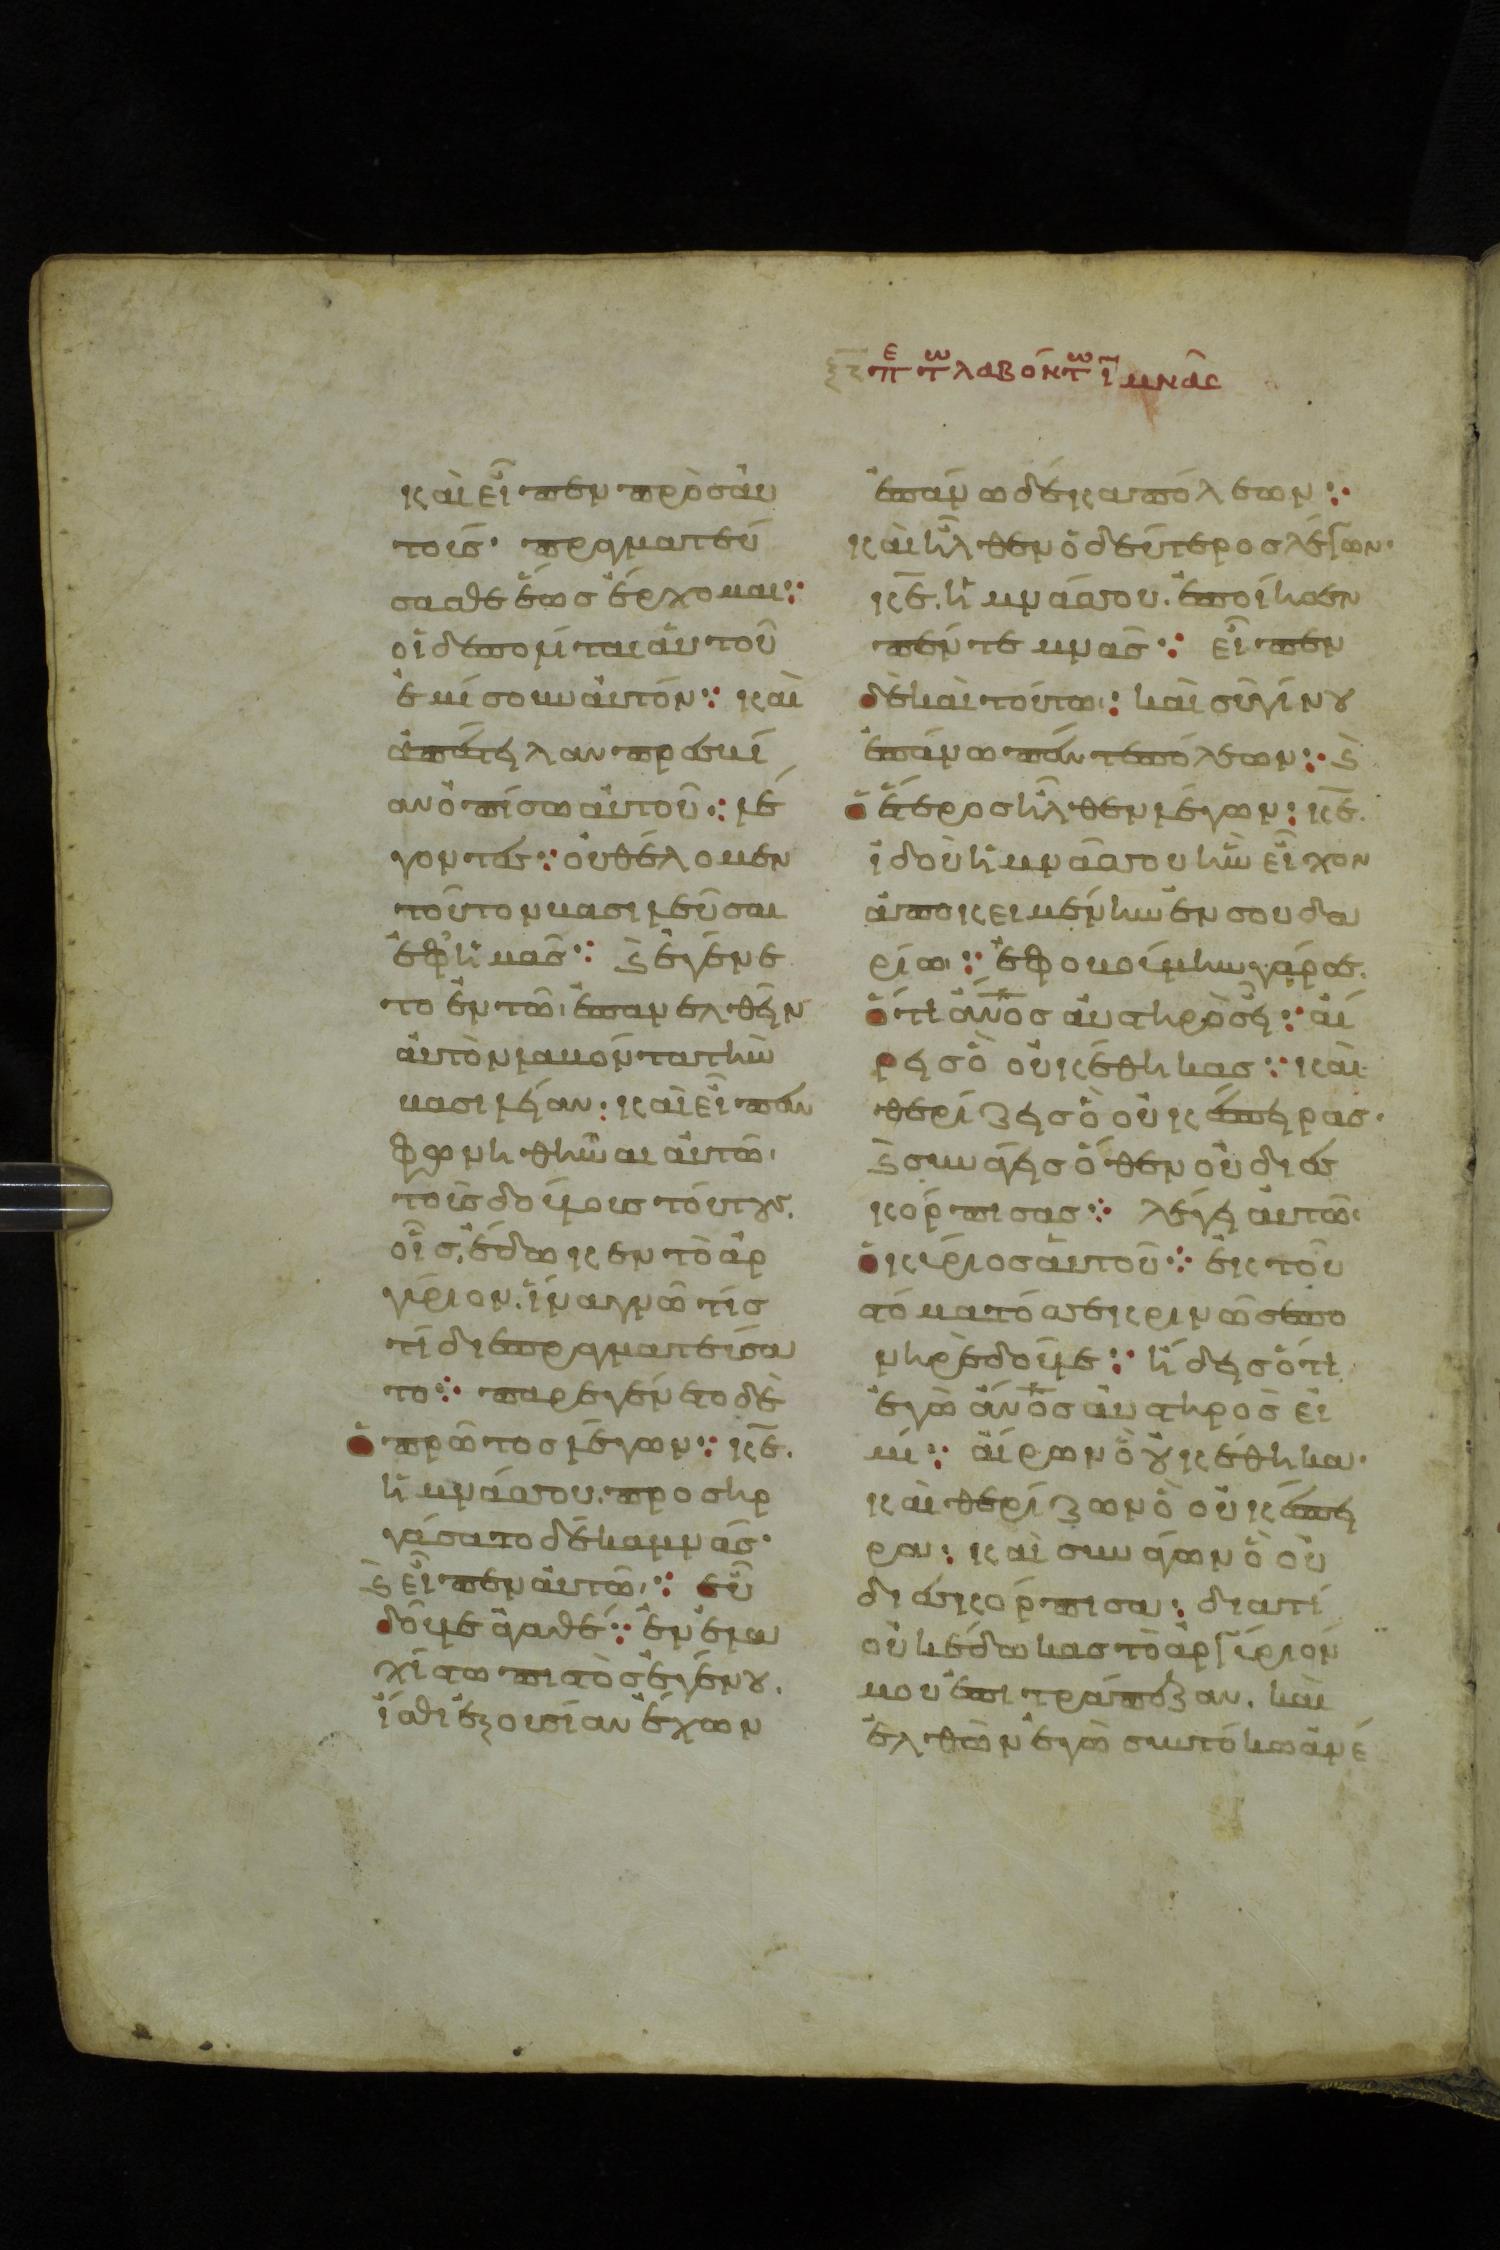 ξζ πε τω λαβόντω ϊ μνᾶς
καὶ εἶπεν πρὸσ ἀυ
τοίσ· πραγματεύ
σασθε ἕωσ ἔρχομαι·:
οἱ δὲ πολίται αὐτοῦ
ἐμίσουν ἀυτόν·: καὶ
ἀπέστειλαν πρεσβεί
αν ὀπίσω ἀυτοῦ·: λέ
γοντες·: οὐ θέλομεν
τοῦτον βασιλεῦσαι
ἐφ ἡμᾶσ·: ϗ ἐγένε
το ἐν τῶ ἐπανελθεῖν
ἀυτὸν λαβόντα τὴν
βασιλείαν: καὶ εἶπεν
φωνηθῆναι ἀυτῶ·
τοὺσ δούλουσ τούτουσ.
οἷσ ἔδωκεν τὸ ἀρ
γύριον. ἵνα γνῶ τίσ
τί διεπραγματεύσα
το·: παρεγένετο δὲ
ὁ πρῶτοσ λέγων·: κ̅ε̅.
ἡ μνᾶ σου. προσηρ
γάσατο δέκα μνᾶσ·
ϗ εἶπεν ἀυτῶ·: εὖ
δοῦλε ἀγαθέ·: ἐν ἐλα
χίστω πιστὸσ ἐγένου.
ἴσθι ἐξουσίαν ἔχων
ἐπάνω δέκα πόλεων·:
καὶ ἦλθεν ὁ δεύτεροσ λέγων·
κ̅ε̅. ἡ μνᾶ σου. ἐποίησεν
πέντε μνᾶσ·: εἶπεν
δὲ καὶ τούτω·: καὶ σὺ γίνου
ἐπάνω πέντε πόλεων·: ϗ
ὁ ἕτεροσ ἦλθεν λέγων: κ̅ε̅.
ἰδοὺ ἡ μνᾶ σου ἣν εἶχον
ἀποκειμένην ἐν σουδα
ρίω·: ἐφοβούμην γάρ σε.
ὅτι ἄν̅ο̅σ αυστηρὸσ εἶ·: αἴ
ρεισ ὃ οὐκ ἔθηκασ·: καὶ
θερίζεισ ὃ οὐκ έσπειρασ·
ϗ συνάγεισ ὅθεν οὐ διεσ
κόρπισασ·: λέγει ἀυτῶ·
ὁ κύριοσ ἀυτοῦ·: ἐκ τοῦ
στόματόσ σε κρινῶ σε πο
νηρὲ δοῦλε·: ἤδεισ ὅτι
ἐγὼ ἄν̅ο̅σ αὐστηρόσ εἰ
μι·: αἴρων ὃ οὐκ ἔθηκα·
καὶ θερίζων ὃ οὐκ έσπει
ρα: καὶ συνάγων ὃ οὐ
διεσκόρπισα: διατί
οὐκ έδωκασ τὸ ἀργύριόν
μου ἐπι τράπεζαν. καὶ
ἐλθὼν ἐγὼ σὺν τόκω ἀνέ